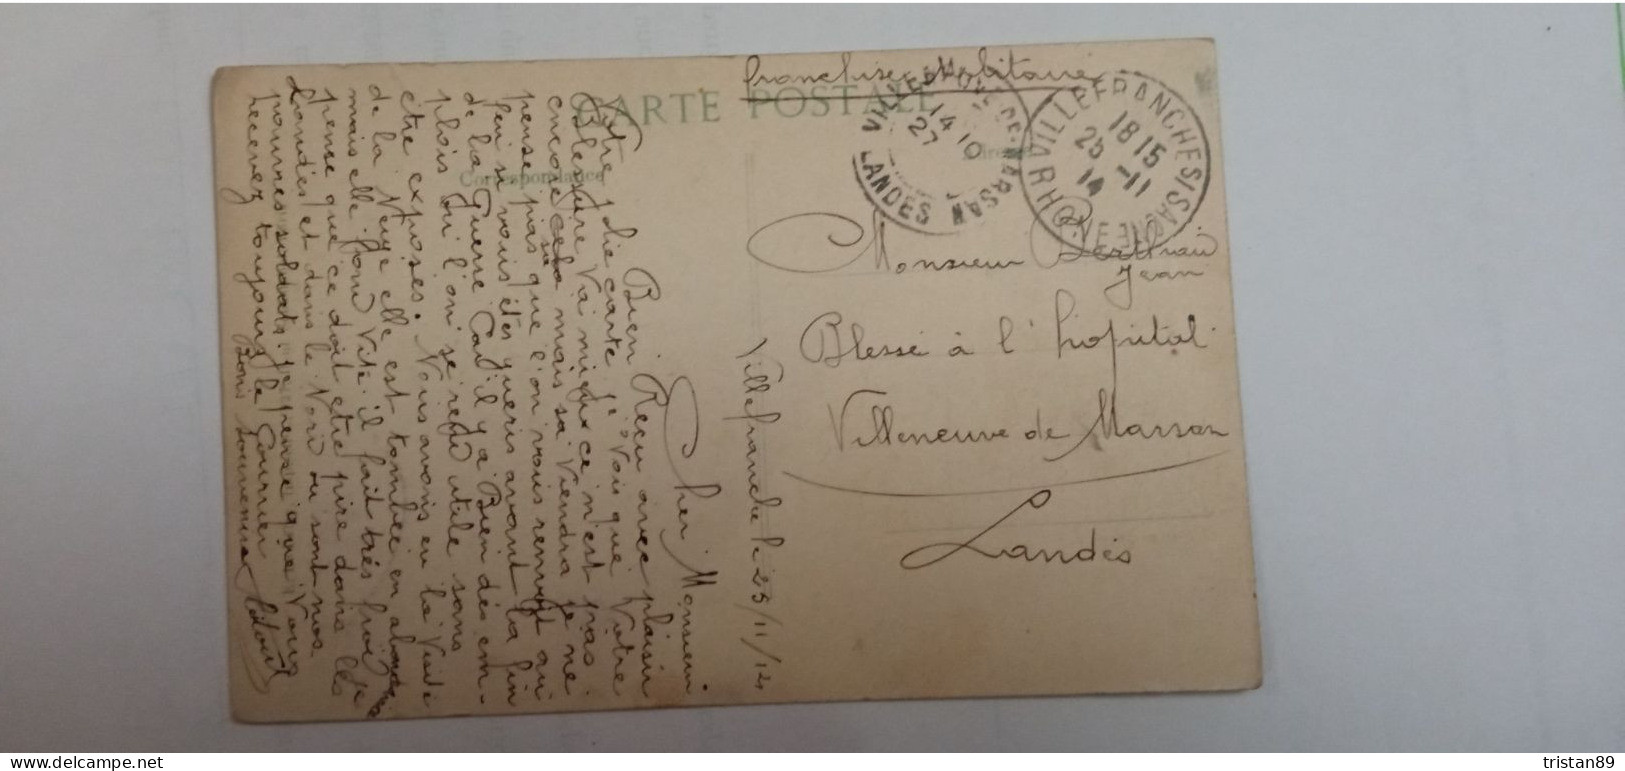 Franchise Militaire
CARTE POSTALE
Correspondance
Adresse
VILLENEUVE-DE-MARSAN
14 10
27
LANDES
VILLEFRANCHE S/ SAONE
18 15
25 -11
14
RHONE
Monsieur
Jean
Blessé à l'hopital
Villeneuve de Marsan
Landès
Villefranche le 25/11/14
Cher Monsieur
Bien Reçu avec plaisir
Votre Jolie carte. Vois que Votre
Blessure Va mieux ce n'est pas
encore cela mais sa Viendra je ne
pense pas que l'on vous renvoit au
feu si vous étés gueris avant la fin
de la Guerre Car il y a Bien dès em-
plois ou l'on se rend utile sans
etre exposés. Nous avons eu la Visite
de la Neige elle est tombée en abondance
mais elle fond Vite il fait très froid je
pense que ce doit etre pire dans les
Landés et dans le Nord ou sont nos
pauvres soldats. je pense que Vous
recevez toujours le Courrier
Bons souvenirs
tristan89